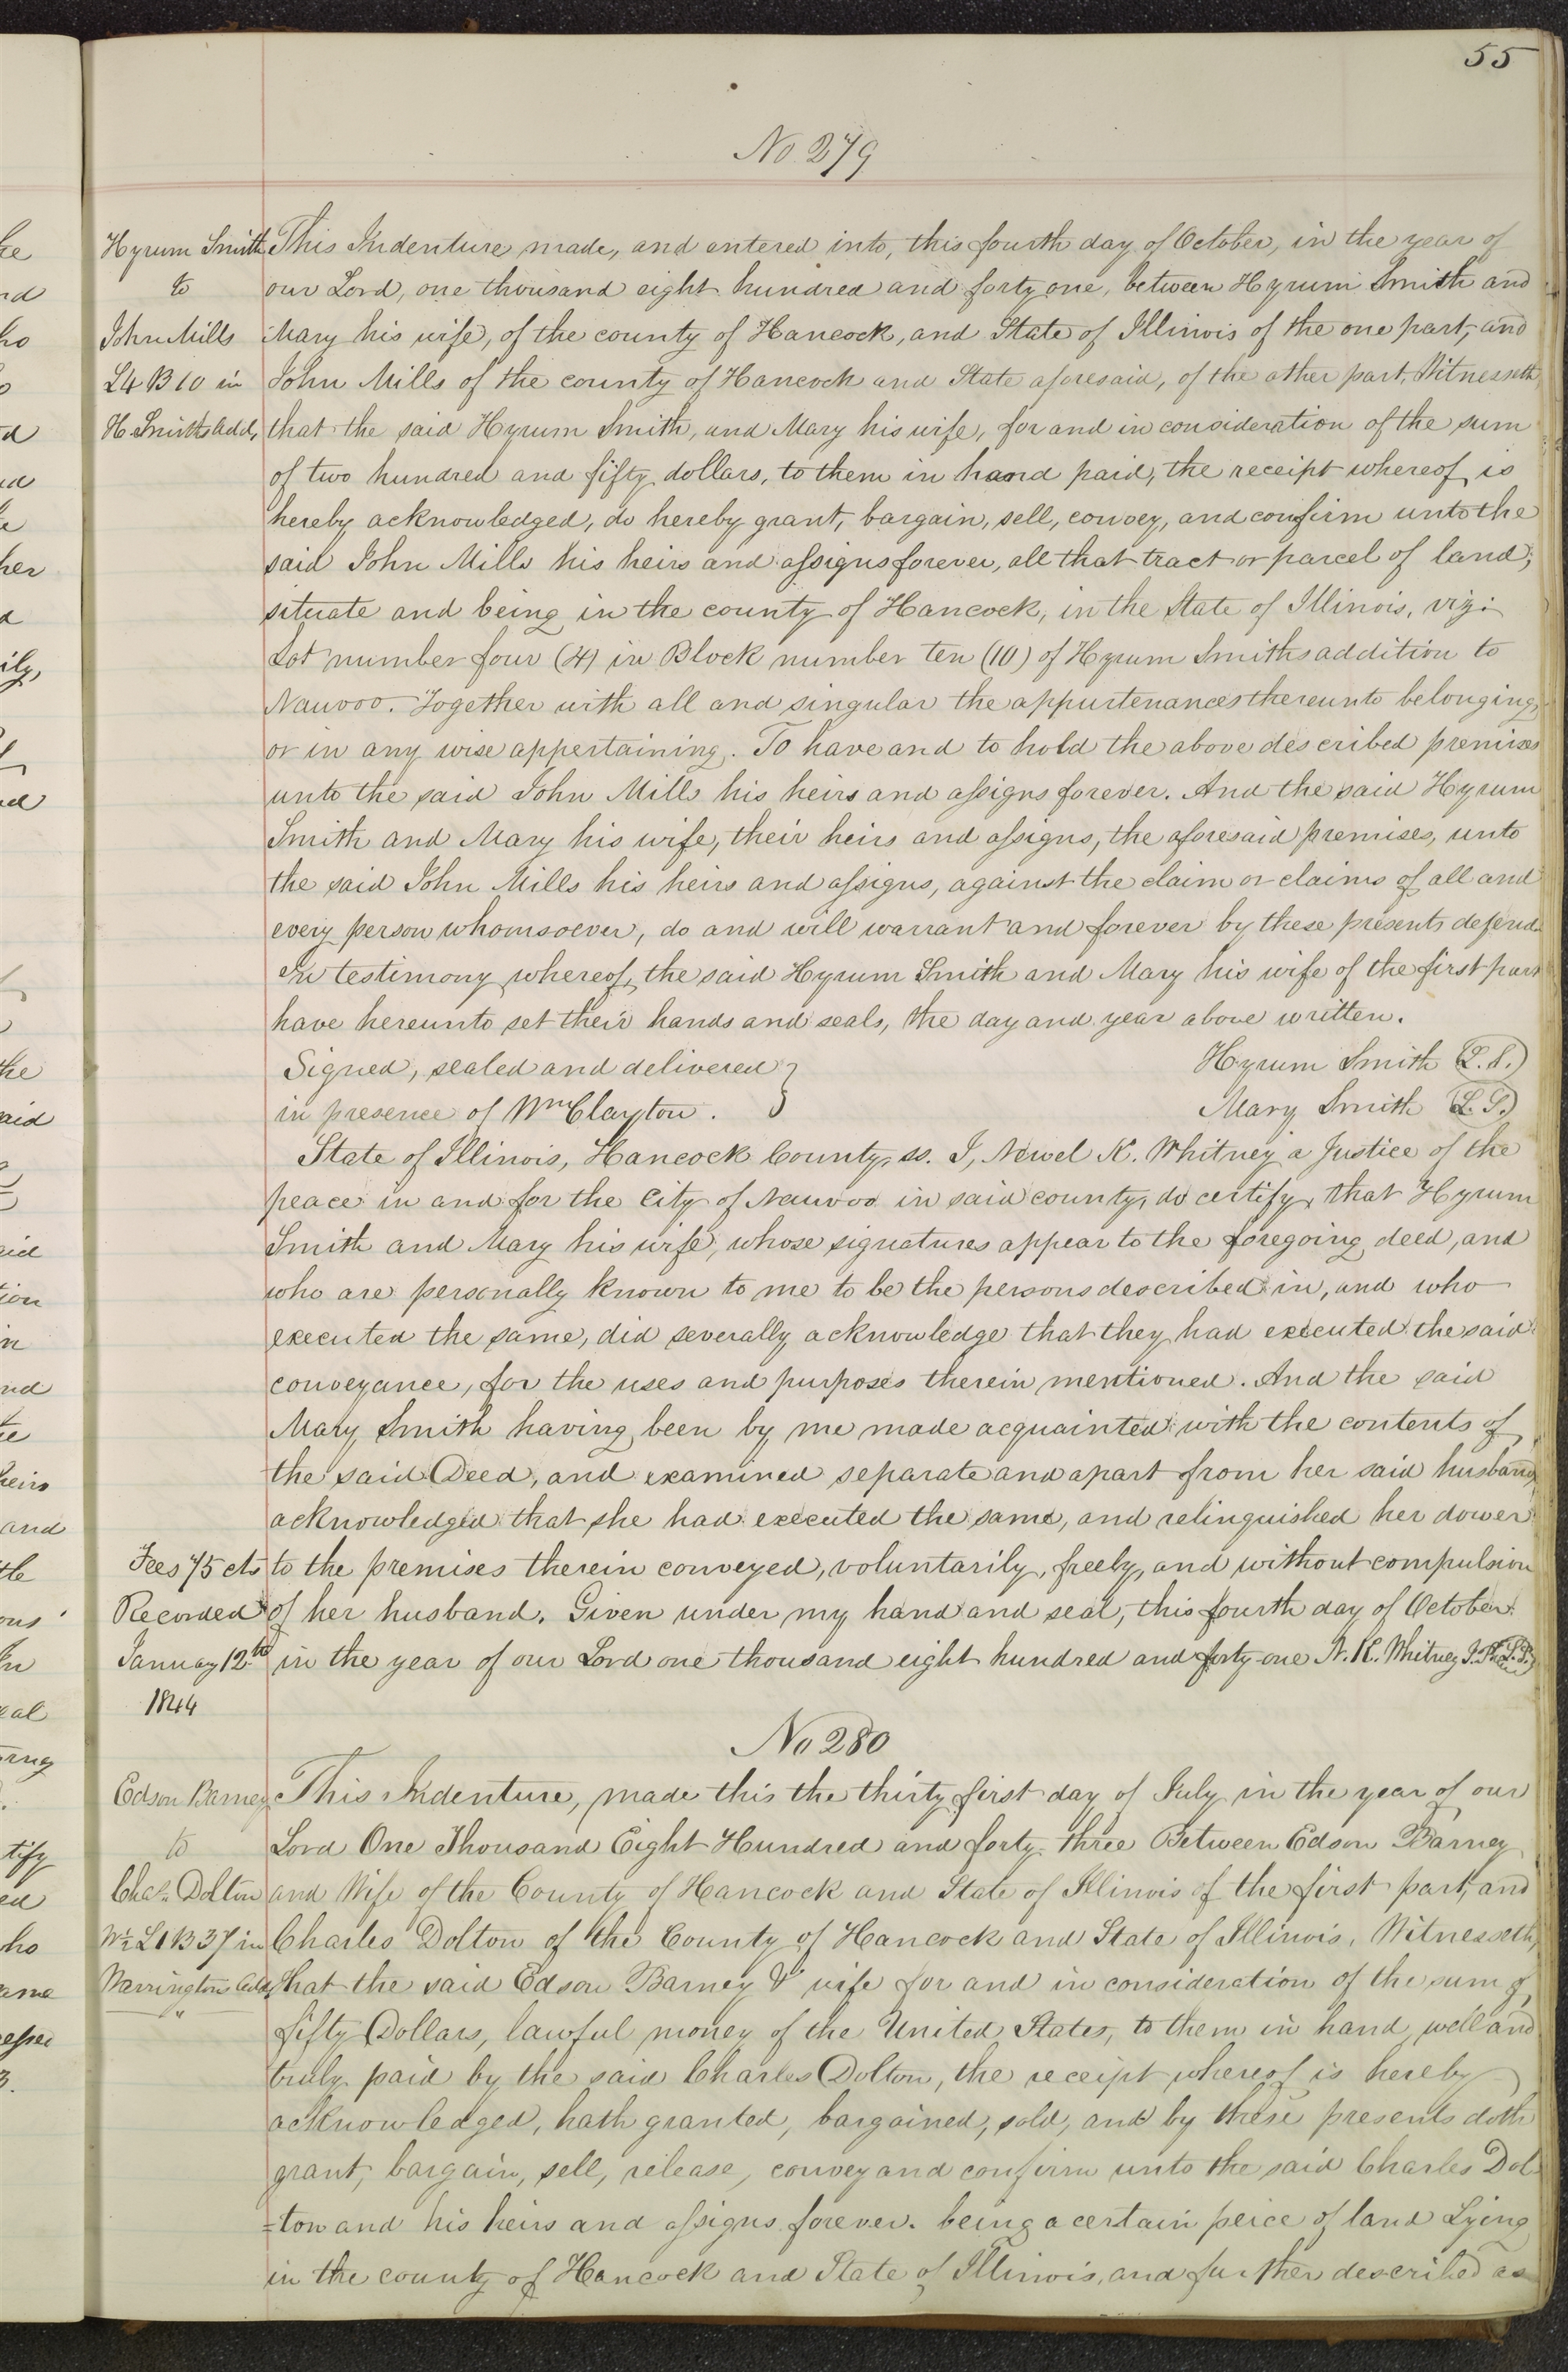 55
No 279
Hyrum Smith
to
John Mills
L4 B 10 in
H. Smiths Add,
This Indenture made, and entered into, this fourth day of October, in the year of
our Lord, one thousand eight hundred and forty one, between Hyrum Smith and
Mary his wife, of the county of Hancock, and State of Illinois of the one part, and
John Mills of the county of Hancock and State aforesaid, of the other part, Witnesseth,
that the said Hyrum Smith, and Mary his wife, for and in consideration of the sum
of two hundred and fifty dollars, to them in hand paid, the receipt whereof, is
hereby acknowledged, do hereby grant, bargain, sell, convey, and confirm unto the
said John Mills his heirs and assigns forever, all that tract or parcel of land,
situate and being in the county of Hancock, in the State of Illinois, viz:
Lot number four (4) in Block number ten (10) of Hyrum Smiths addition to
Nauvoo. Together with all and singular the appurtenances thereunto belonging,
or in any wise appertaining. To have and to hold the above described premises
unto the said John Mills his heirs and assigns forever. And the said Hyrum
Smith and Mary his wife, their heirs and assigns, the aforesaid premises, unto
the said John Mills his heirs and assigns, against the claim or claims of all and
every person whomsoever, do and will warrant and forever by these presents defend.
In testimony whereof, the said Hyrum Smith and Mary his wife of the first part
have hereunto set their hands and seals, the day and year above written.
Signed, sealed and delivered } Hyrum Smith (L.S.)
in presence of Wm Clayton. Mary Smith (L.S.)
State of Illinois, Hancock County, ss. I, Newel K. Whitney a Justice of the
peace in and for the City of Nauvoo in said county, do certify, that Hyrum
Smith and Mary his wife, whose signatures appear to the foregoing deed, and
who are personally known to me to be the persons described in, and who
executed the same, did severally acknowledge that they had executed the said
conveyance, for the uses and purposes therein mentioned. And the said
Mary Smith having been by me made acquainted with the contents of
the said Deed, and examined separate and apart from her said husband,
acknowledged that she had executed the same, and relinquished her dower
to the premises therein conveyed, voluntarily, freely, and without compulsion
of her husband. Given under my hand and seal, this fourth day of October
in the year of our Lord one thousand eight hundred and forty-one N. K. Whitney J.P. (L.S.)
Fees 75 cts
Recorded
January 12th
1844
No 280
Edson Barney
to
Chas. Dolton
W½ L1 B 37 in
Warringtons Add,
This Indenture, made this the thirty first day of July in the year of our
Lord One Thousand Eight Hundred and forty-three Between Edson Barney
and Wife of the County of Hancock and State of Illinois of the first part, and
Charles Dolton of the County of Hancock and State of Illinois, Witnesseth,
That the said Edson Barney & wife for and in consideration of the sum of
fifty Dollars, lawful money of the United States, to them in hand, well and
truly paid by the said Charles Dolton, the receipt whereof is hereby
acknowledged, hath granted, bargained, sold, and by these presents doth
grant, bargain, sell, release, convey and confirm unto the said Charles Dol
=ton and his heirs and assigns forever. being a certain peice of land Lying
in the county of Hancock and State of Illinois, and further described as